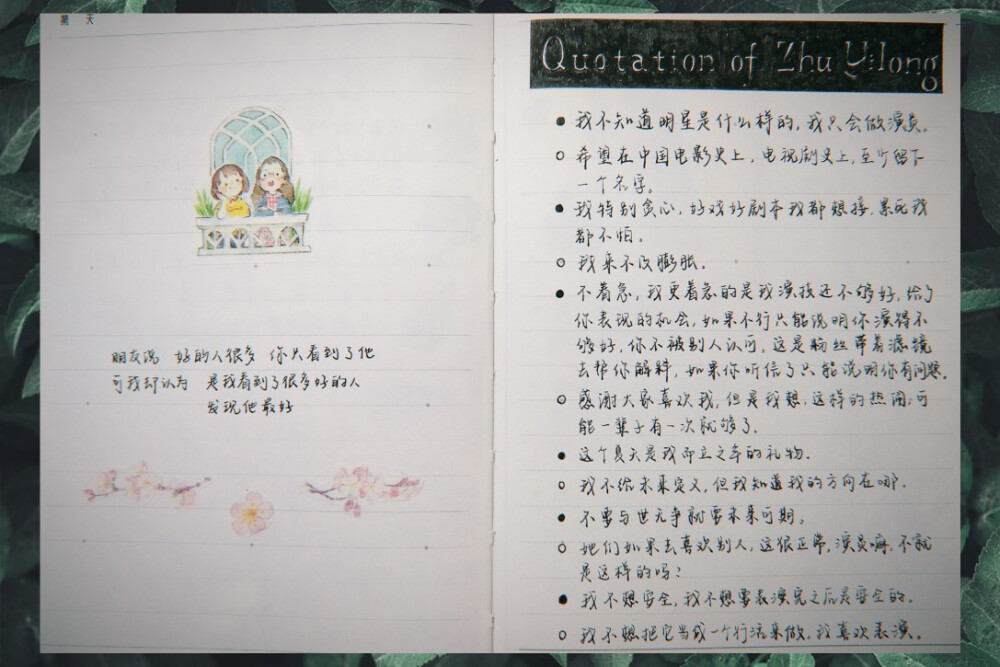 夏天
朋友说 好的人很多 你只看到了他
可我却认为 是我看到了很多好的人
发现他最好
Quotation of Zhu Yilong
我不知道明星是什么样的,我只会做演员。
希望在中国电影史上,电视剧史上,至少留下
一个名字。
我特别贪心,好戏好剧本我都想接,累死我
都不怕。
我来不及膨胀。
不着急,我更着急的是我演技还不够好,给了
你表现的机会,如果不行只能说明你演得不
够好,你不被别人认可,这是粉丝带着滤镜
去帮你解释,如果你听信了只能说明你有问题。
感谢大家喜欢我,但是我想,这样的热闹,可
能一辈子有一次就够了。
这个夏天是我而立之年的礼物。
我不给未来定义,但我知道我的方向在哪。
不要与世无争就要未来可期。
她们如果去喜欢别人,这很正常,演员嘛,不就
是这样的吗?
我不想安全,我不想要表演完之后是安全的。
我不想把它当成一个行活来做,我喜欢表演。